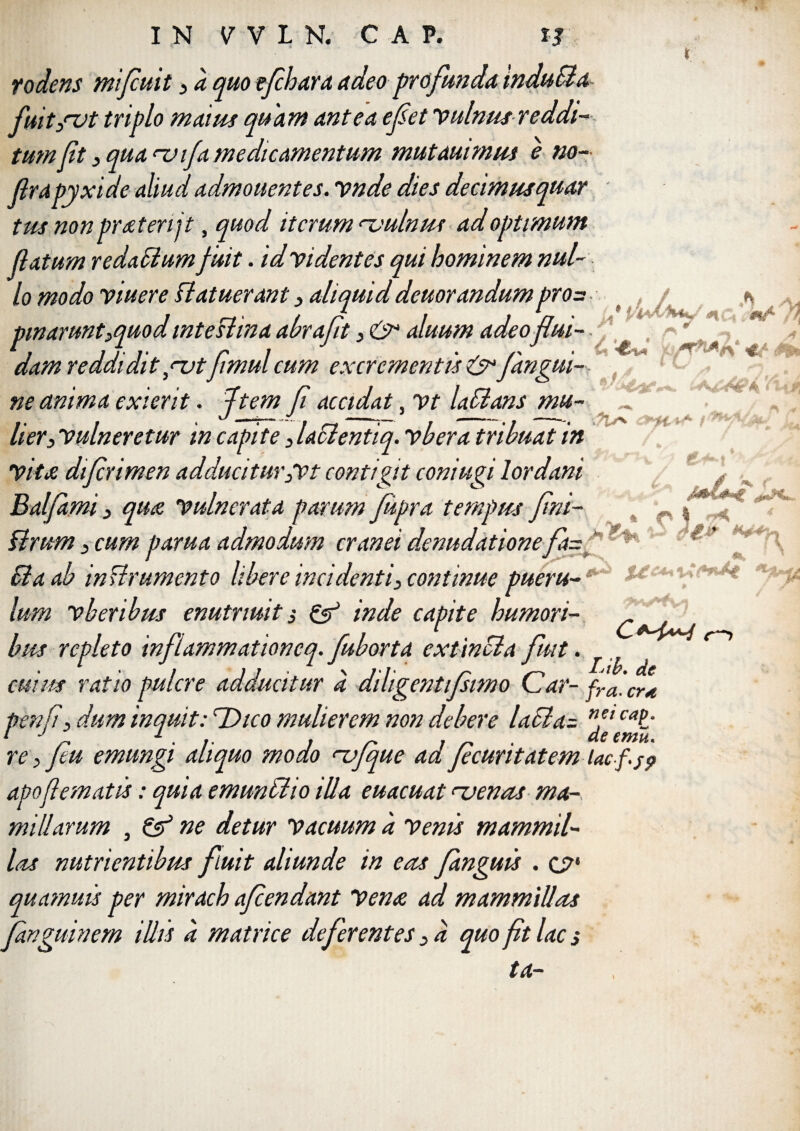 IN VVLN. CAP. 15
rodens miſcuit, à quo eſchara adeo profunda inducta
fuit, vt triplo maius quàm antea eſſet vulnus reddi-
tum ſit, qua viſa medicamentum mutauimus è no-
ſtra pyxide aliud admouentes. vnde dies decimusquar
tus non præterijt, quod iterum vulnus ad optimum
ſtatum redactum fuit. id videntes qui hominem nul-
lo modo viuere ſtatuerant, aliquid deuorandum pro=
pinarunt, quod inteſtina abraſit, & aluum adeo flui-
dam reddidit, vt ſimul cum excrementis & ſangui-
ne anima exierit. Item ſi accidat, vt lactans mu-
lier, vulneretur in capite, lactentiq. vbera tribuat in
vitæ diſcrimen adducitur, vt contigit coniugi Iordani
Balſami, quæ vulnerata parum ſupra tempus ſini-
ſtrum, cum parua admodum cranei denudatione fa=
cta ab inſtrumento libere incidenti, continue pueru-
lum vberibus enutriuit; & inde capite humori-
bus repleto inflammationeq. ſuborta extincta fuit.
cuius ratio pulcre adducitur à diligentiſsimo Car-
penſi, dum inquit: Dico mulierem non debere lacta=
re, ſeu emungi aliquo modo vſque ad ſecuritatem
apoſtematis: quia emunctio illa euacuat venas ma-
millarum, & ne detur vacuum à venis mammil-
las nutrientibus fluit aliunde in eas ſanguis. &
quamuis per mirach aſcendant venæ ad mammillas
ſanguinem illis à matrice deferentes, à quo fit lac;
ta-
Lib. de
fra. cra
nei cap.
de emu.
lac. f. 59